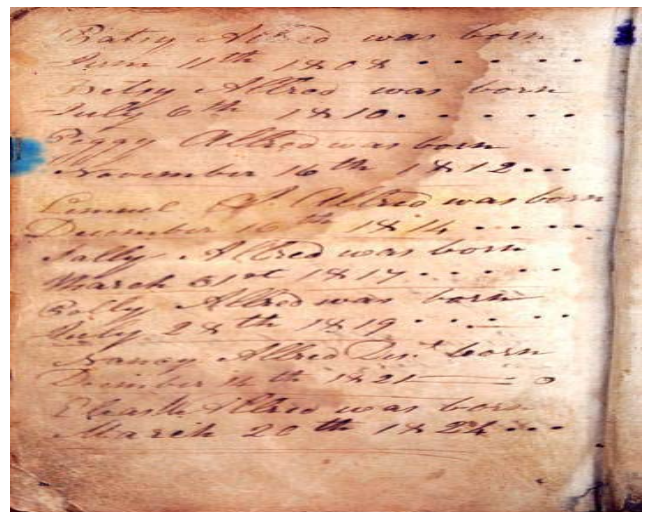 Patsy Allred was born
June 11th 1808
Betsy Allred was born
July 6th 1810
Peggy Allred was born
November 16th 1812
Lemuel Allred was born
December 16th 1814
Sally Allred was born
March 31st 1817
Polly Allred was born
July 28th 1819
Nancy Allred born
December 14th 1821
Allred was born
March 20th 1824